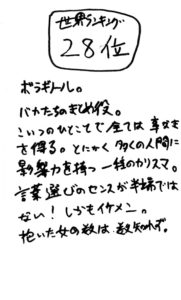 世界ランキング
28位
ボラギノール。
バカたちのまとめ役。
こいつのひとことで全ては幸せ
を得る。とにかく多くの人間に
影響力を持つ一種のカリスマ。
言葉選びのセンスが半端では
ない！しかもイケメン。
抱いた女の数は数知れず。